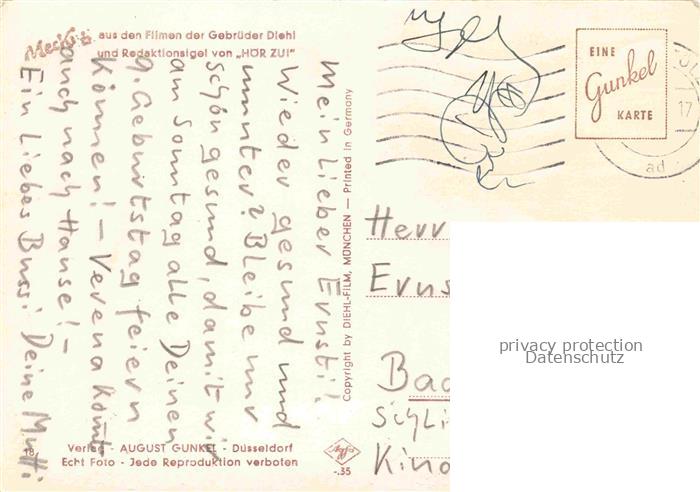 Mecki
aus den Filmen der Gebrüder Diehl
und Redaktionsigel von „HÖR ZU!"
Mein Lieber Ernsti!
Wieder gesund und
munter? Bleibe nur
schön gesund, damit wir
am Sonntag alle Deinen
9. Geburtstag feiern
können! – Verena kommt
auch nach Hause! –
Ein Liebes Bussi Deine Mutti
Copyright by DIEHL-FILM, MÜNCHEN — Printed in Germany
EINE
Gunkel
KARTE
17
ad
Herr
Erns
Bad
Kind
privacy protection
Datenschutz
18
Verlag - AUGUST GUNKEL - Düsseldorf
Echt Foto - Jede Reproduktion verboten
Agfa
-.35